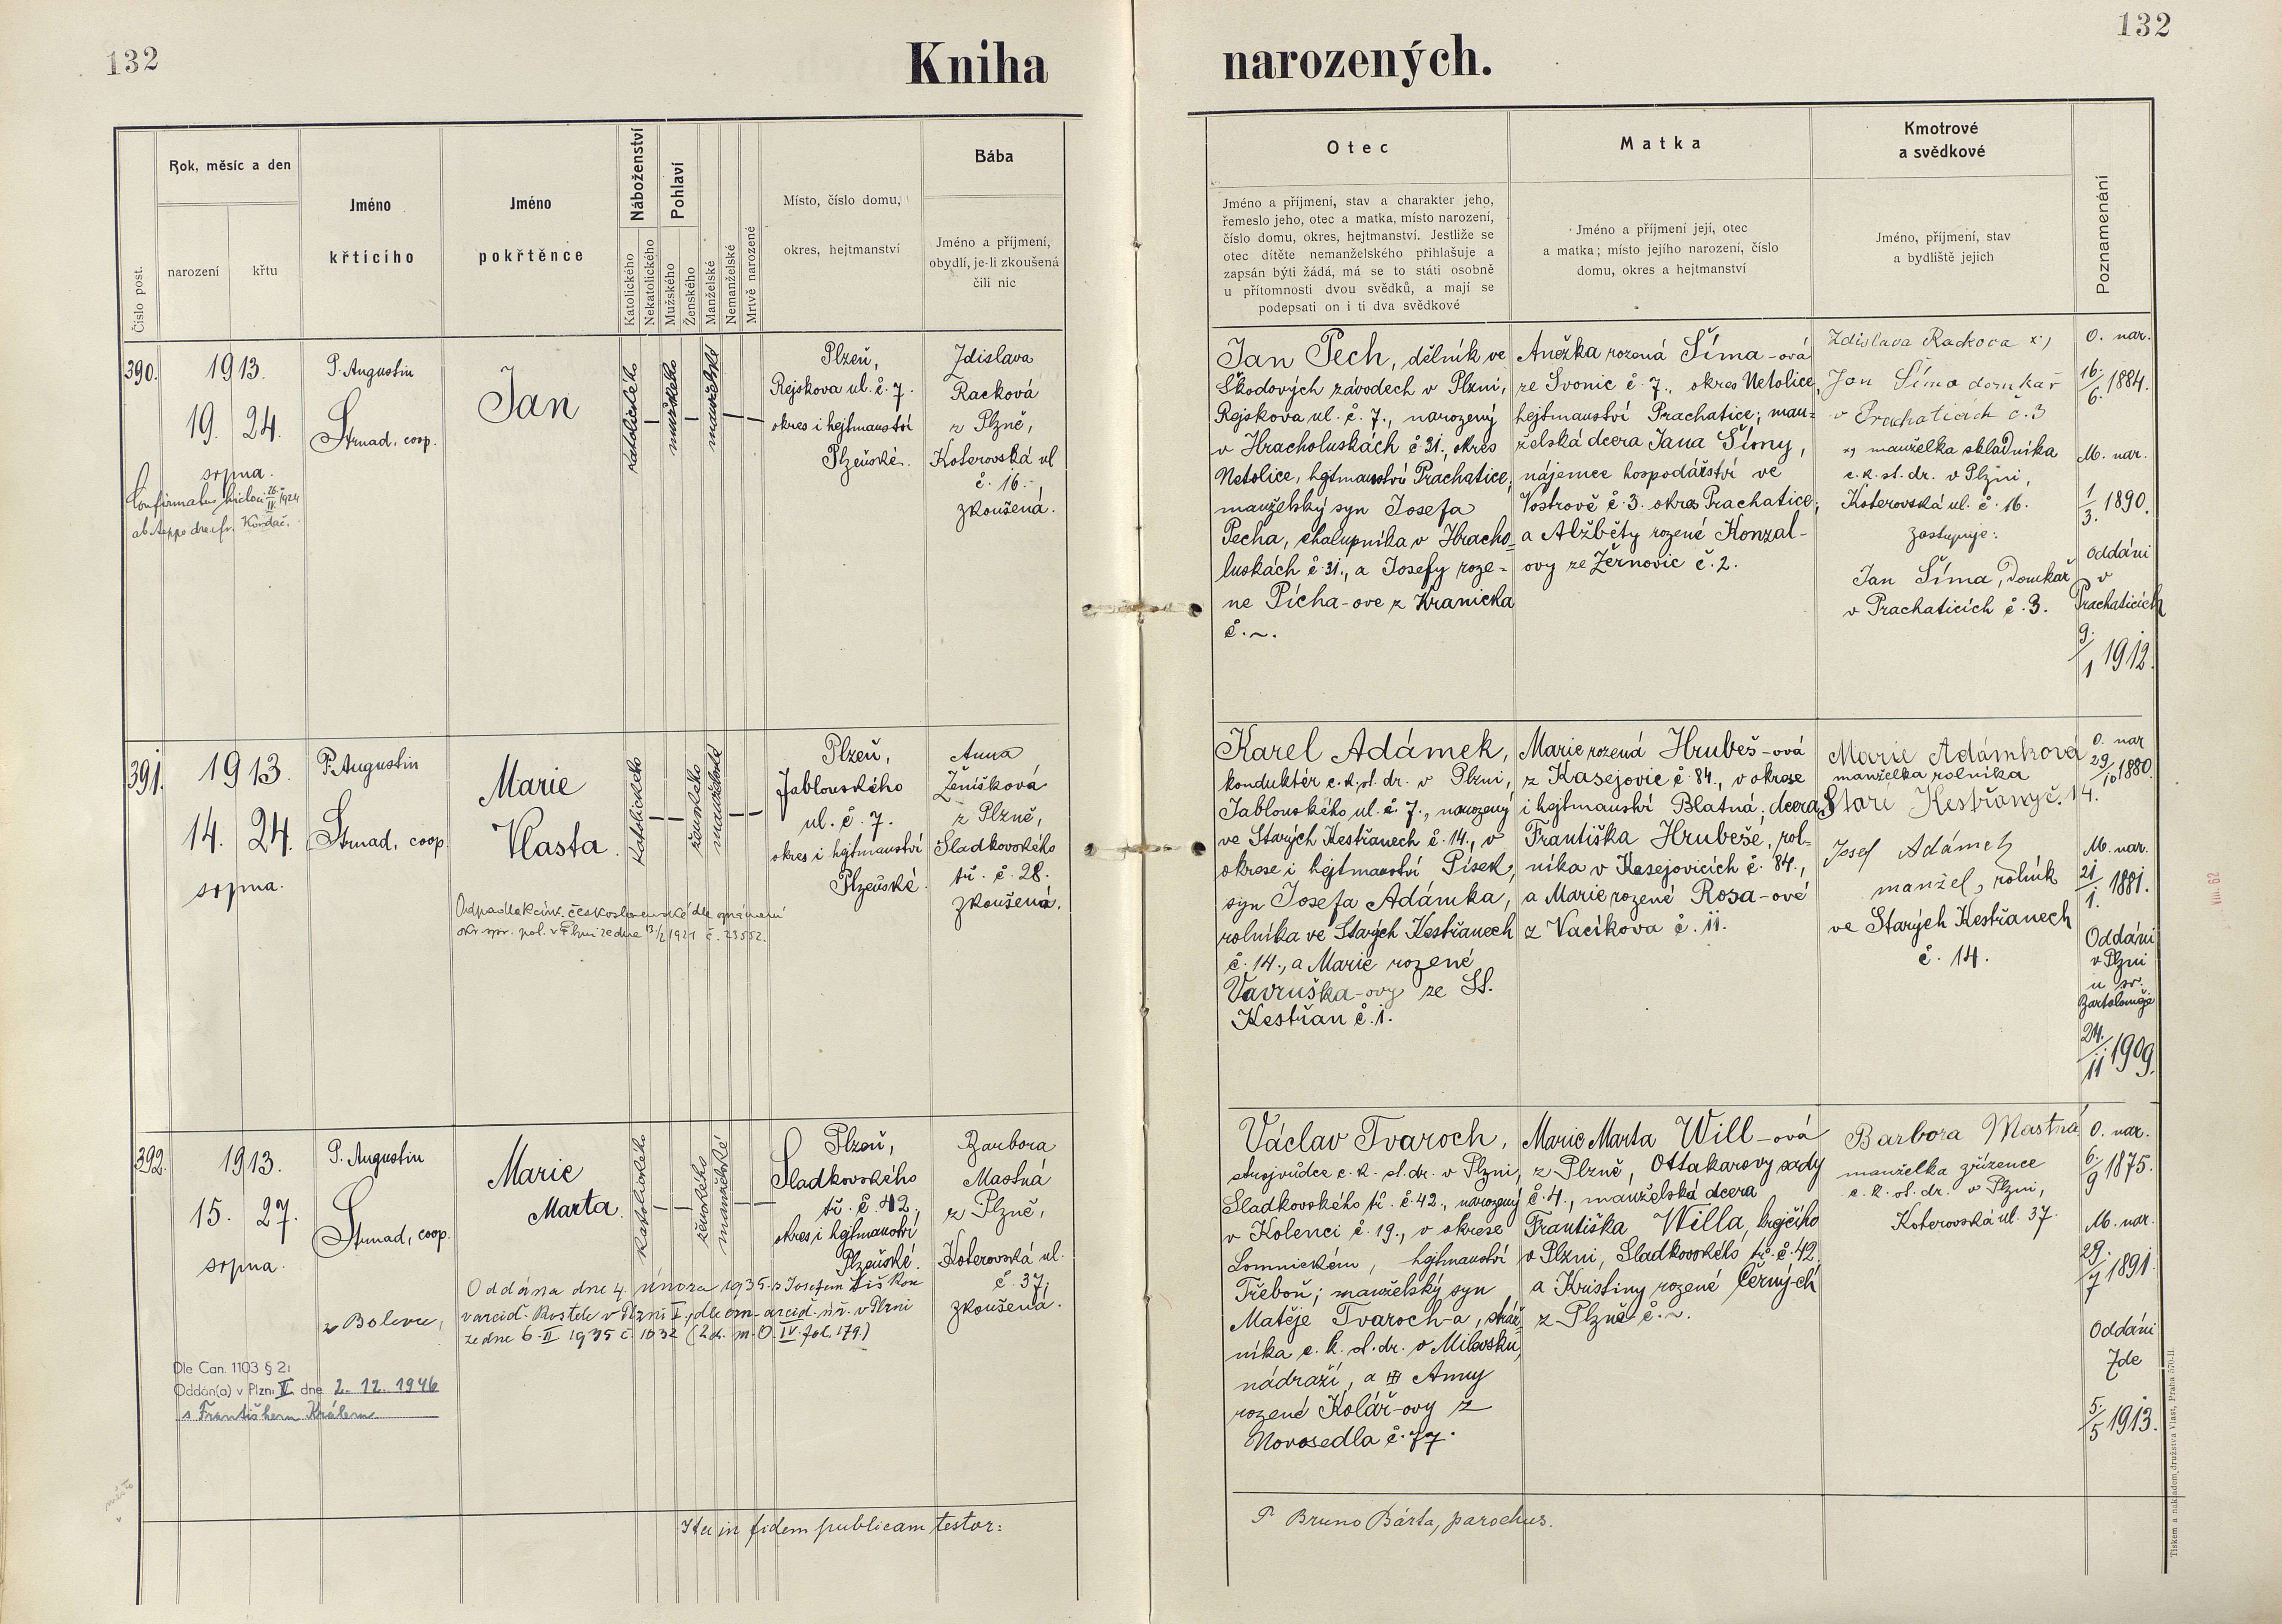 132
Kniha narozených.
132
Číslo post.
Rok, měsíc a den
narození
křtu
Jméno
křticího
Jméno
pokřtěnce
Náboženství
Katolického
Nekatolického
Pohlaví
Mužského
Ženského
Manželské
Nemanželské
Mrtvě narozené
Místo, číslo domu,
okres, hejtmanství
Bába
Jméno a příjmení,
obydlí, je-li zkoušená
čili nic
Otec
Jméno a příjmení, stav a charakter jeho,
řemeslo jeho, otec a matka, místo narození,
číslo domu, okres, hejtmanství. Jestliže se
otec dítěte nemanželského přihlašuje a
zapsán býti žádá, má se to státi osobně
u přítomnosti dvou svědků, a mají se
podepsati on i ti dva svědkové
Matka
Jméno a příjmení její, otec
a matka; místo jejího narození, číslo
domu, okres a hejtmanství
Kmotrové
a svědkové
Jméno, příjmení, stav
a bydliště jejich
Poznamenání
390.
1913.
19. 24.
srpna.
P. Augustin
Strnad, coop.
Jan
katolického
mužského
manželské
Plzeň,
Rejskova ul. č. 7.
okres i hejtmanství
Plzeňské.
Zdislava
Racková
z Plzně,
Koterovská ul
č. 16.
zkoušená.
Jan Pech, dělník ve
Škodových závodech v Plzni,
Rejskova ul. č. 7., narozený
v Hracholuskách č 31., okres
Netolice, hejtmanství Prachatice;
manželský syn Josefa
Pecha, chalupníka v Hracho-
luskách č 31., a Josefy roze-
né Pícha-ové z Kranicka
č. ~.
Anežka rozená Šíma-ová
ze Svonic č. 7., okres Netolice,
hejtmanství Prachatice; man-
želská dcera Jana Šímy,
nájemce hospodářství ve
Vostrově č. 3. okres Prachatice;
a Alžběty rozené Konzal-
ovy ze Žernovic č. 2.
Zdislava Racková x)
Jan Šíma domkař
v Prachaticích č. 3
x) manželka skladníka
c. k. st. dr. v Plzni,
Koterovská ul. č. 16.
zastupuje:
Jan Šíma, domkař
v Prachaticích č. 3.
O. nar.
16./6. 1884.
M. nar.
1/3. 1890.
oddáni
v
Prachaticích
9./1 1912.
391.
1913.
14. 24.
srpna.
P. Augustin
Strnad, coop.
Marie
Vlasta.
katolického
ženského
manželské
Plzeň,
Jablonského
ul. č. 7.
okres i hejtmanství
Plzeňské.
Anna
Ženíšková
z Plzně,
Sladkovského
tř. č. 28.
zkoušená.
Odpadla k círk. československé dle oznámení
okr. spr. pol. v Plzni ze dne 13/2 1921 č. 23552.
Karel Adámek,
konduktér c. k. st. dr. v Plzni,
Jablonského ul. č. 7., narozený
ve Starých Kestřanech č. 14., v
okrese i hejtmanství Písek,
syn Josefa Adámka,
rolníka ve Starých Kestřanech
č. 14., a Marie rozené
Vavruška-ovy ze St.
Kestřan č. 1.
Marie rozená Hrubeš-ová
z Kasejovic č. 84., v okrese
i hejtmanství Blatná; dcera
Františka Hrubeše, rol-
níka v Kasejovicích č. 84.,
a Marie rozené Rosa-ové
z Vacíkova č. 11.
Marie Adámková
manželka rolníka
Staré Kestřany č. 14.
Josef Adámek
manžel, rolník
ve Starých Kestřanech
č. 14.
O. nar
29/10 1880.
M. nar.
21/1. 1881.
Oddáni
v Plzni
u sv.
Bartoloměje
24./11 1909.
392.
1913.
15. 27.
srpna.
P. Augustin
Strnad, coop.
Marie
Marta.
katolického
ženského
manželské
Plzeň,
Sladkovského
tř. č. 42,
okres i hejtmanství
Plzeňské.
Barbora
Mastná
z Plzně,
Koterovská ul.
č. 37,
zkoušená.
Oddána dne 4. února 1935 s Josefem Liškou
z Bolevce, v arcid. kostele v Plzni I., dle ozn. arcid. úř. v Plzni
ze dne 6. II 1935 č. 1032 (2d. m. O. IV fol. 179.)
Dle Can. 1103 § 2:
Oddán(a) v Plzni V. dne 2. 12. 1946
s Františkem Králem
Václav Tvaroch,
strojvůdce c. k. st. dr. v Plzni,
Sladkovského tř. č. 42., narozený
v Kolenci č. 19., v okrese
Lomnickém, hejtmanství
Třeboň; manželský syn
Matěje Tvaroch-a, stráž-
níka c. k. st. dr. v
nádraží, a Anny
rozené Kolář-ovy z
Novosedla č. 77.
Marie Marta Will-ová
z Plzně, Ottakarovy sady
č. 4., manželská dcera
Františka Willa, krejčího
v Plzni, Sladkovského tř. č. 42.
a Kristiny rozené Černý-ch
z Plzně č. ~.
Barbora Mastná
manželka zřízence
c. k. st. dr. v Plzni,
Koterovská ul. 37.
O. nar.
6./9 1875.
M. nar.
29./7 1891.
Oddáni
zde
5./5 1913.
Ita in fidem publicam testor:
P. Bruno Bárta, parochus.
VIII. 62
Tiskem a nákladem družstva Vlast, Praha 570-II.